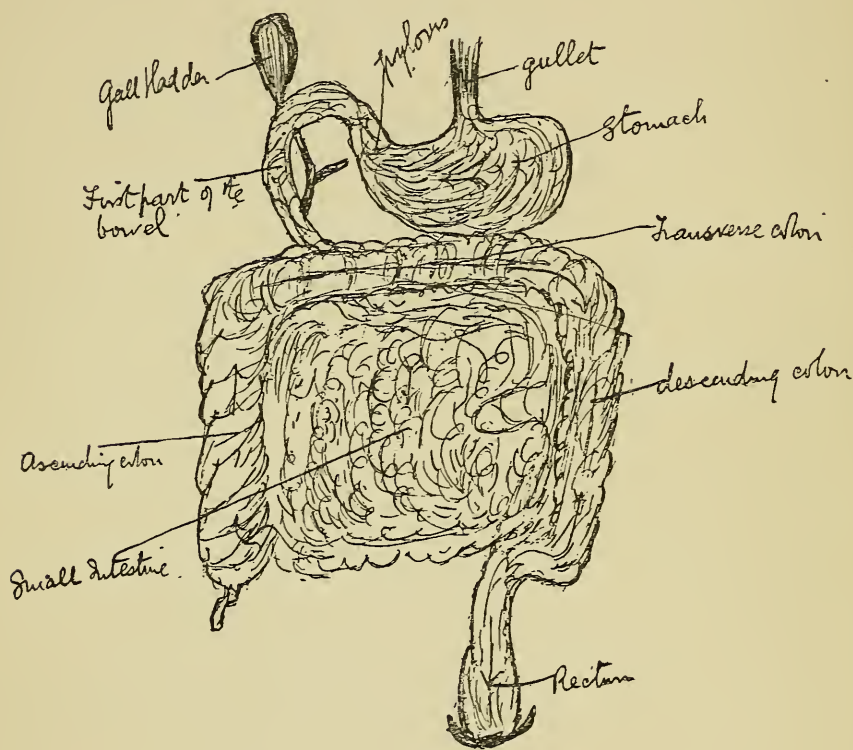 Gall bladder
pylorus
gullet
Stomach
First part of the
bowel
Transverse colon
descending colon
Ascending colon
Small Intestine.
Rectum